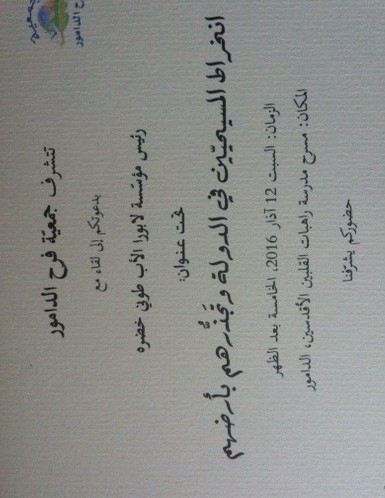 جمعية
فرح الدامور
تتشرف جمعيّة فرح الدامور
بدعوتكم إلى لقاء مع
رئيس مؤسّسة لابورا الأب طوني خضره
تحت عنوان:
انخراط المسيحيّين في الدولة وتَجَذُّرهم بأرضهم
الزمان: السبت 12 آذار 2016، الخامسة بعد الظهر
المكان: مسرح مدرسة راهبات القلبين الأقدسين، الدامور
حضوركم يشرّفنا